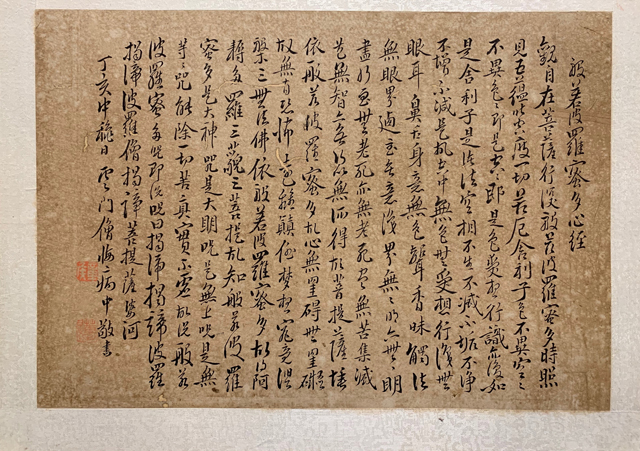 般若波羅蜜多心經
觀自在菩薩行深般若波羅蜜多時照
見五蘊皆空度一切苦厄舍利子色不異空〻
不異色〻即是空〻即是色受想行識亦復如
是舍利子是諸法空相不生不滅不垢不淨
不增不減是故空中無色無受想行識無
眼耳鼻舌身意無色聲香味觸法
無眼界迺至無意識界無無明亦無〻明
盡乃至無老死亦無老死盡無苦集滅
道無智亦無得以無所得故菩提薩埵
依般若波羅蜜多故心無罣礙無罣礙
故無有恐怖遠離顛倒夢想究竟涅
槃三世諸佛依般若波羅蜜多故得阿
耨多羅三藐三菩提故知般若波羅
蜜多是大神咒是大明咒是無上咒是無
等〻咒能除一切苦真實不虛故說般若
波羅蜜多咒即說咒曰揭諦揭諦波羅
揭諦波羅僧揭諦菩提薩婆訶
丁亥中穐日雲門僧海病中敬書